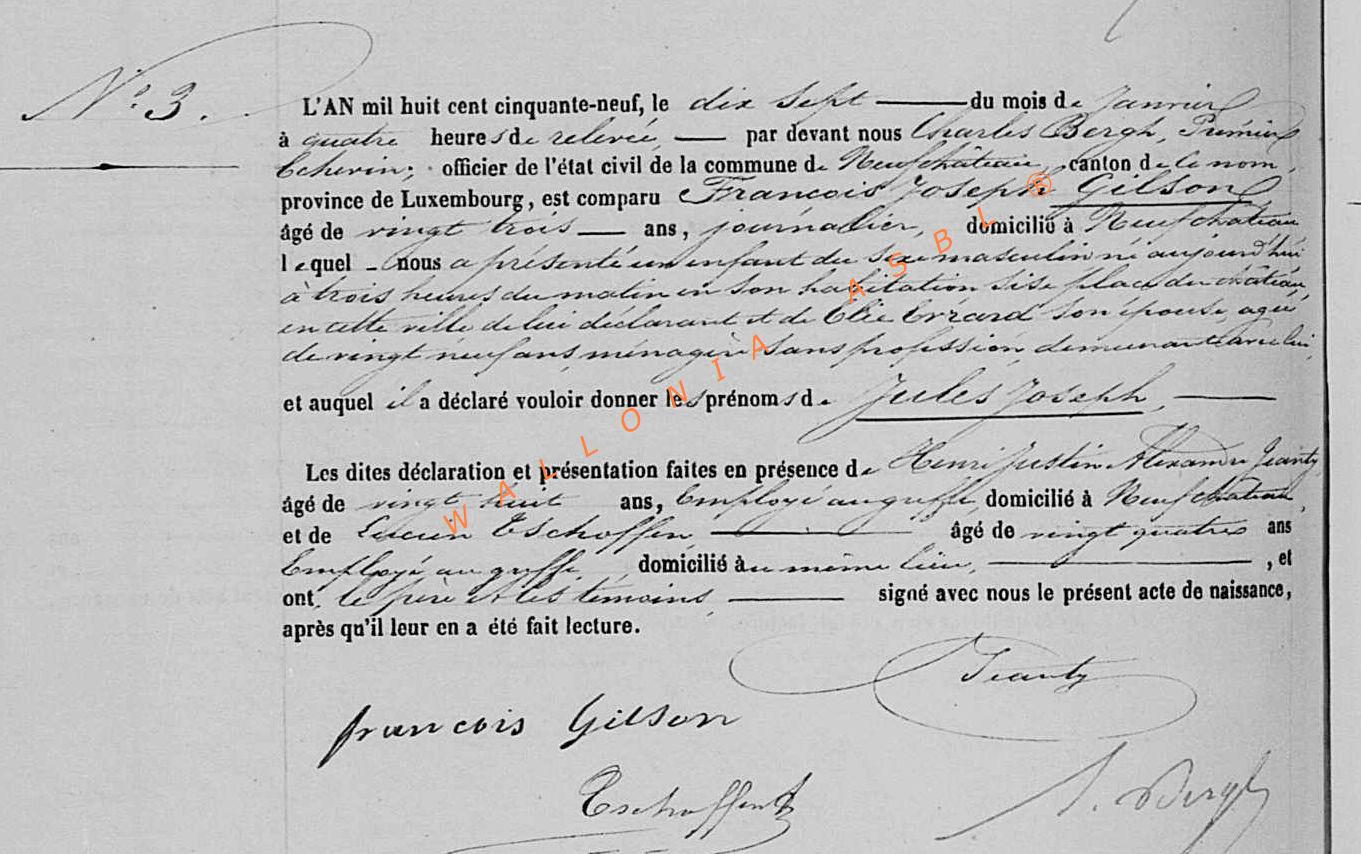 N° 3.
L'AN mil huit cent cinquante-neuf, le dix sept du mois de Janvier
à quatre heures de relevée, par devant nous Charles Bergh, Premier
Echevin, officier de l'état civil de la commune de Neufchâteau, canton de ce nom,
province de Luxembourg, est comparu François Joseph Gilson
âgé de vingt trois ans, journalier, domicilié à Neufchâteau
lequel nous a présenté un enfant du sexe masculin né aujourd'hui
à trois heures du matin en son habitation sise place du château,
en cette ville de lui déclarant et de Elie Errard son épouse, agée
de vingt neuf ans, ménagère sans profession, demeurante avec lui,
et auquel il a déclaré vouloir donner les prénoms de Jules Joseph,
Les dites déclaration et présentation faites en présence de Henri Justin Alexandre Jeanty
âgé de vingt huit ans, Employé au greffe, domicilié à Neufchâteau,
et de Lucien Tschoffen, âgé de vingt quatre ans
Employé au greffe, domicilié au même lieu, , et
ont, le père et les témoins, signé avec nous le présent acte de naissance,
après qu'il leur en a été fait lecture.
Jeanty
françois Gilson
Tschoffen
Bergh
WALLONIA ASBL ®